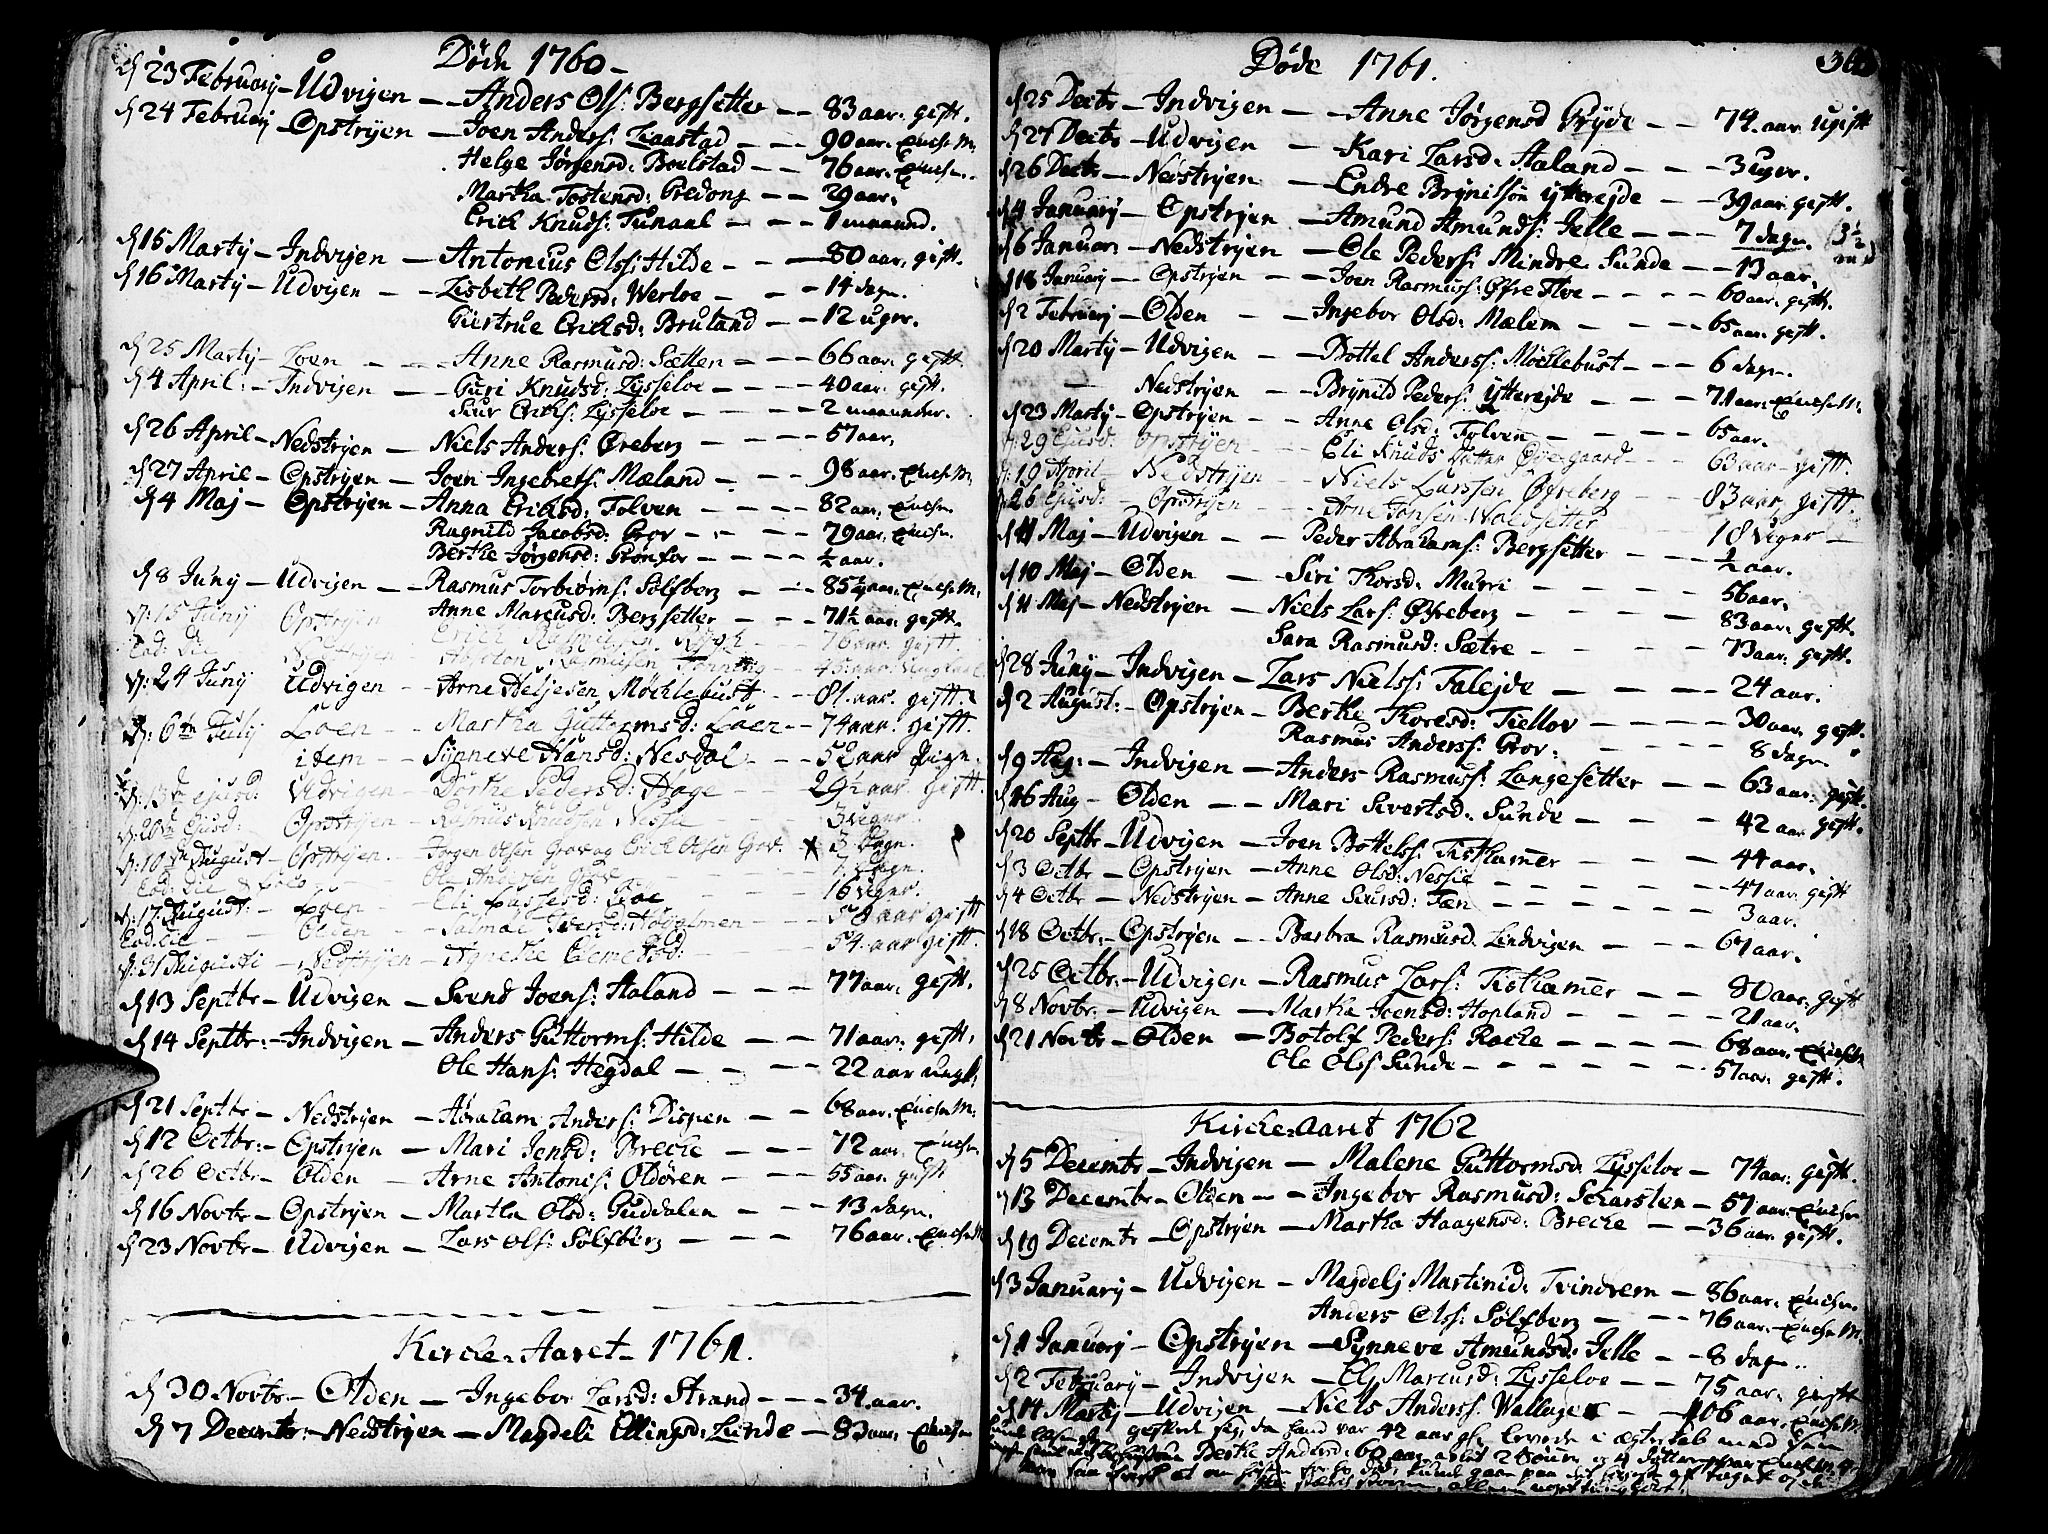 Døde 1760
d 23 February – Udvigen – Anders Ols: Bergsetter – 83 aar. gift.
d 24 February – Opstryen – Joen Anders: Taastad – 90 aar. Enche M:
Helge Jørgensd: Boelstad – 76 aar. Enche.
Martha Tostensd: Gredong – 29 aar.
Erich Knuds: Tunaal – 1 maaned.
d 15 Martij – Indvijen – Antonius Ols: Hilde – 80 aar. gift.
d 16 Martij – Udvigen – Lisbeth Pedersd: Werloe – 14 dage.
Giertrue Erichsd: Bruland – 12 uger.
d 25 Martij – Loen – Anne Rasmusd: Sætten – 66 aar. gift.
d 4 April: – Indvigen – Guri Knudsd: Lysseloe – 40 aar. gift.
Siur Erichs: Lysseloe – 2 maaneder.
d 26 April – Nedstryen – Niels Anders: Øreberg – 57 aar.
d 27 April – Opstryen – Joen Ingebrets: Mæland – 98 aar. Enche M:
d 4 Maj – Opstryen – Anna Erichsd: Folven – 82 aar. Enche.
Ragnild Jacobsd: Grov – 79 aar. Enche.
Berthe Jørgensd: Grønfor – ½ aar.
d 8 Juny – Udvigen – Rasmus Torbiørns: Solfberg – 85½ aar. Enche M:
Anne Marcusd: Bergsetter – 71½ aar. gift.
d: 15 Juny Opstryen Erich Rasmusen – 76 aar gift.
Eod: die Rasmusen
d: 24 Juny Udvigen – Arne Heljesen Møchlebust – 81. aar. gift.
d: 6te July Loen – Martha Guttormsd: Loen – 74 aar. gift.
item – Synneve Hansd: Nesdal – 52 aar
d: 13de ejusd: Udvigen – Dorthe Pedersd: Hage – 29½ aar gift.
d: 20de Ejusd: – Opstryen – Rasmus Knudsen Nesse – 3 veger.
d: 10de August – Opstryen – Jørgen Olsen Grov og Erich Olsen Grov. x 3 Dagn.
Eod: die – Ole Andersen Grov – 7 Dagn.
d: 17 August: – Loen – Eli Lassesd: – 16 veger.
Eod: die – Olden – – 58 aar gift
d: 31 Augusti – Nedstryen – Agnethe – 54. aar gift.
d 13 Septbr – Udvigen – Svend Joens: Aaland – 77 aar. gift.
d 14 Septbr: – Indvigen – Anders Guttorms: Hilde – 71 aar. gift.
Ole Hans: Hegdal – 22 aar
d 21 Septbr – Nedstryen – Abraham Anders: Dispen – 68 aar. Enche M:
d 12 Octbr: – Opstryen – Mari Jensd: Breche – 72 aar. Enche.
d 26 Octbr – Olden – Arne Antonis: Oldøren – 55 aar gift
d 16 Novbr – Opstryen – Martha Olsd: Guddalen – 13 dage.
d 23 Novbr – Udvigen – Lars Ols: Solfberg – 76 aar. Enche M
Kirche-Aaret – 1761.
d 30 Novbr – Olden – Ingebor Larsd: Strand – 34 aar.
d 7 Decembr: – Nedstryen – Magdeli Ellingsd: Lunde – 83 aar. Enche
Døde 1761.
d 25 Decbr – Indvigen – Anne Jørgensd Fryde – 74. aar. ugift
d 27 Decbr – Udvigen – Kari Larsd: Aaland – 3 uger.
d 26 Decbr – Nedstryen – Endre Brynilssøn ytterejde – 39 aar. gift.
d 4 January – Opstryen – Amund Amunds: Jelle – 7 dage.
d 6 Januar: – Nedstryen – Ole Peders: Mindre Sunde – 13 aar.
d 18 January – Opstryen – Joen Rasmus: Øfre Floe – 60 aar. gift.
d 2 February – Olden – Ingebor Olsd: Mælem – 65 aar. gift.
d 20 Martij – Udvigen – Bottel Anders: Møchlebust – 6 dage.
– Nedstryen – Brynild Peders: ytterejde – 71 aar. Enche M:
d 23 Martij – Opstryen – Anne Olsd: Folven – 65 aar.
d: 29 Ejusd: Opstryen – Eli Knuds Datter Øyegaard – 63 aar – gift.
d: 19 April – Nedstryen – Niels Larssen Øfreberg – 83 aar, gift.
d: 26 Ejusd: – Opstryen – Arne Jonsen – 18 Veger –
d 4 Maj – Udvigen – Peder Abrahams: Bergsetter – ½ aar.
d 10 Maj – Olden – Siri Thorsd: Murri – 56 aar.
d 11 Maj – Nedstryen – Niels Lars: Øfreberg – 83 aar. gift.
Sara Rasmusd: Sætre – 73 aar: gift.
d 28 Juny – Indvigen – Lars Niels: Falejde – 24 aar.
d 2 August: – Opstryen – Berthe Thoresd: Tiellov – 30 aar. gift.
Rasmus Anders: Grov: – 8 dage
d 9 Aug: – Indvigen – Anders Rasmus: Langesetter – 63 aar. gift.
d 16 Aug – Olden – Mari Siversd: Sunde – 42 aar gift.
d 20 Septbr – Udvigen – Joen Bottels: Tisthamer – 44 aar.
d 3 Octbr – Opstryen – Anne Olsd: Nessie – 47 aar gift
d 4 Octbr – Nedstryen – Anne Siursd: Tæn – 3 aar.
d 18 Octbr: – Opstryen – Barbra Rasmusd. Lindvigen – 67 aar.
d 25 Octbr: – Udvigen – Rasmus Lars: Tisthamer – 80 aar: gift
d 8 Novbr: – Udvigen – Martha Joensd: Hopland – 21 aar.
d 21 Novbr – Olden – Botolf Peders: Rache – 68 aar. Enche
Ole Ols: Sunde – 57 aar. gift.
Kirche-Aaret 1762
d 5 Decembr – Indvigen – Malene Guttormsd: Lysseloe – 74 aar: gift.
d 13 Decembr – Olden – Ingebor Rasmusd: Scharsten – 57 aar. Enche
d 19 Decembr – Opstryen – Martha Haagensd: Breche – 36 aar. gift.
d 3 January – Udvigen – Magdelj Martinid: Tvindrem – 86 aar. Enche.
Anders Ols: Solfberg – 76 aar. Enche M:
d 1 January – Opstryen – Synneve Amundsd: Jelle – 8 dage
d 2 February – Indvigen – Elj Marcusd: Lysseloe – 75 aar. gift
d 14 Martij – Udvigen – Niels Anders: Wallage – 106 aar. Enche M.
giftede sig, da hand var 42 aar gl: levede i ægteskab med sin
Berthe Andersd: 60 aar, avlet 2 Sønner og 4 Døtter